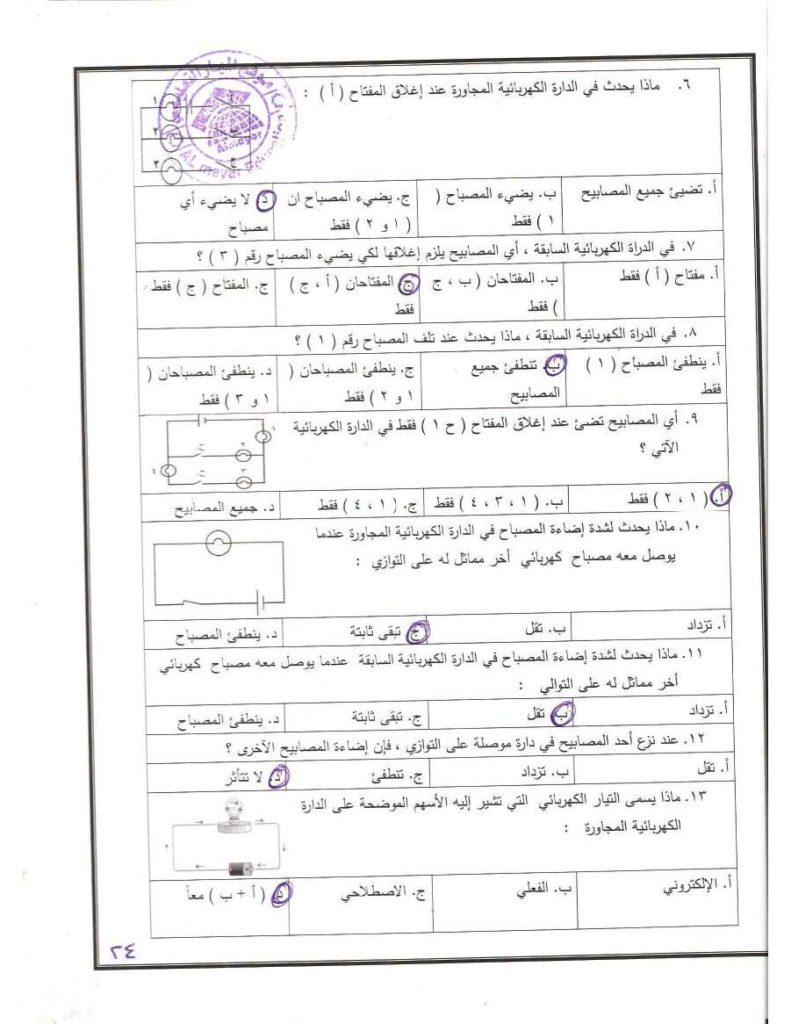 ٦. ماذا يحدث في الدارة الكهربائية المجاورة عند إغلاق المفتاح ( أ ) :
١
٢
٣
أ
ب
ج
Almayar
AL mayar
أ. تضيئ جميع المصابيح
ب. يضيء المصباح ( ١ ) فقط
ج. يضيء المصباح ان ( ١ و ٢ ) فقط
د. لا يضيء أي مصباح
٧. في الدراة الكهربائية السابقة ، أي المصابيح يلزم إغلاقها لكي يضيء المصباح رقم ( ٣ ) ؟
أ. مفتاح ( أ ) فقط
ب. المفتاحان ( ب ، ج ) فقط
ج. المفتاحان ( أ ، ج ) فقط
ج. المفتاح ( ج ) فقط
٨. في الدراة الكهربائية السابقة ، ماذا يحدث عند تلف المصباح رقم ( ١ ) ؟
أ. ينطفئ المصباح ( ١ ) فقط
ب. تنطفئ جميع المصابيح
ج. ينطفئ المصباحان ( ١ و ٢ ) فقط
د. ينطفئ المصباحان ( ١ و ٣ ) فقط
٩. أي المصابيح تضئ عند إغلاق المفتاح ( ح ١ ) فقط في الدارة الكهربائية
الآتي ؟
أ. ( ١ ، ٢ ) فقط
ب. ( ١ ، ٣ ، ٤ ) فقط
ج. ( ١ ، ٤ ) فقط
د. جميع المصابيح
١٠. ماذا يحدث لشدة إضاءة المصباح في الدارة الكهربائية المجاورة عندما
يوصل معه مصباح كهربائي أخر مماثل له على التوازي :
أ. تزداد
ب. تقل
ج. تبقى ثابتة
د. ينطفئ المصباح
١١. ماذا يحدث لشدة إضاءة المصباح في الدارة الكهربائية السابقة عندما يوصل معه مصباح كهربائي
أخر مماثل له على التوالي :
أ. تزداد
ب. تقل
ج. تبقى ثابتة
د. ينطفئ المصباح
١٢. عند نزع أحد المصابيح في دارة موصلة على التوازي ، فإن إضاءة المصابيح الآخرى ؟
أ. تقل
ب. تزداد
ج. تنطفئ
د. لا تتأثر
١٣. ماذا يسمى التيار الكهربائي التي تشير إليه الأسهم الموضحة على الدارة
الكهربائية المجاورة :
أ. الإلكتروني
ب. الفعلي
ج. الاصطلاحي
د. ( أ + ب ) معاً
٢٤